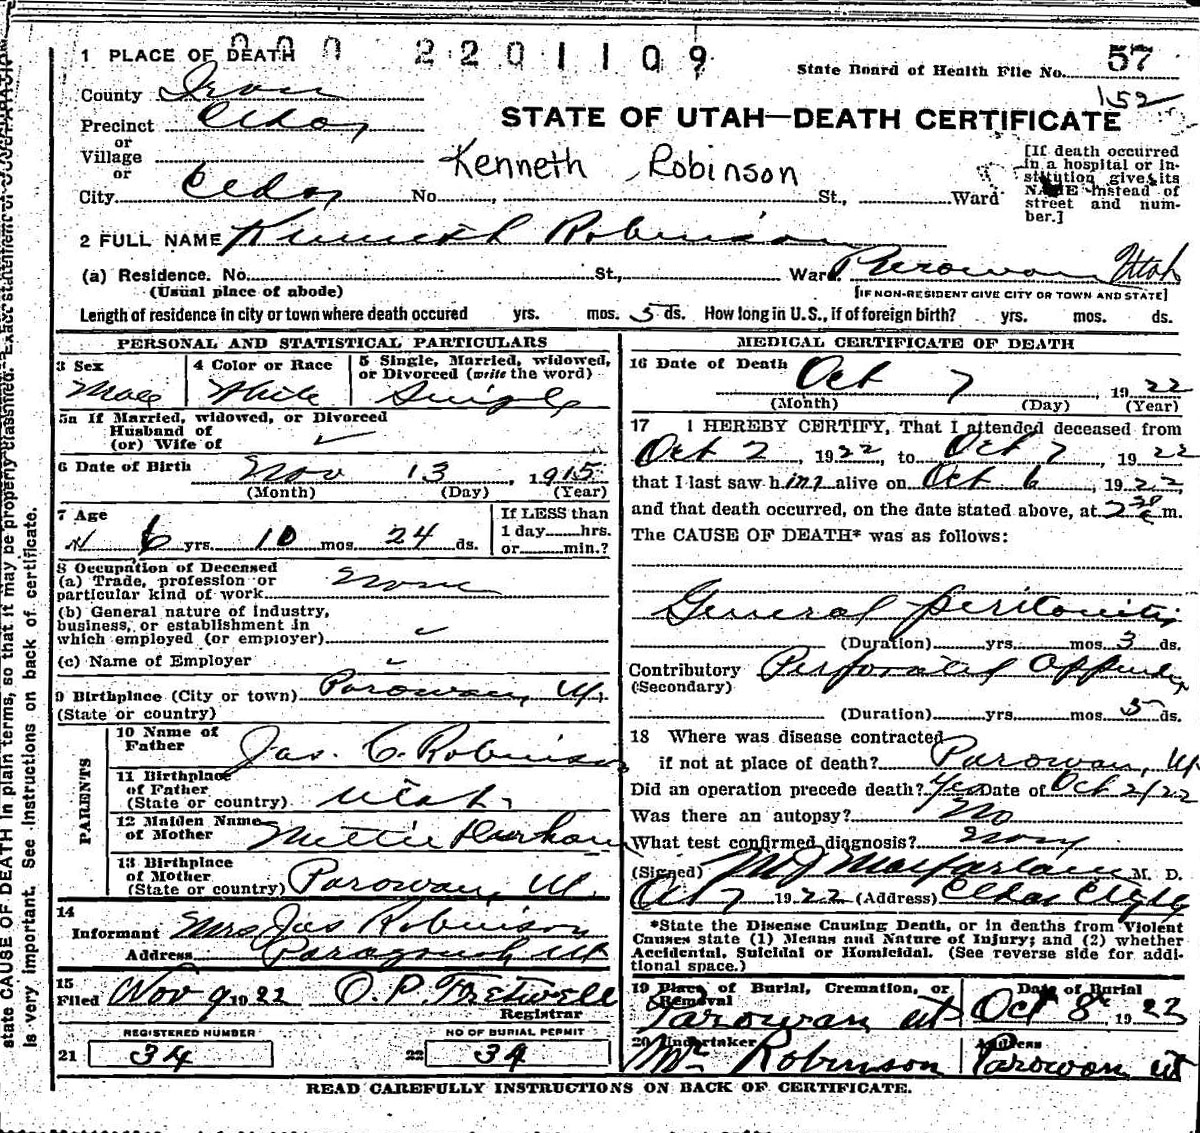 1 PLACE OF DEATH
000 2201109
State Board of Health File No. 57
152
County Iron
Precinct Cedar
or
Village
or
City Cedar No. , St., Ward
STATE OF UTAH—DEATH CERTIFICATE
Kenneth Robinson
[If death occurred
in a hospital or in-
stitution give its
NAME instead of
street and num-
ber.]
2 FULL NAME Kenneth Robinson
(a) Residence. No. St., Ward. Parowan Utah
(Usual place of abode)
[IF NON-RESIDENT GIVE CITY OR TOWN AND STATE]
Length of residence in city or town where death occured yrs. mos. 5 ds. How long in U.S., if of foreign birth? yrs. mos. ds.
PERSONAL AND STATISTICAL PARTICULARS
3 Sex
Male
4 Color or Race
White
5 Single, Married, widowed,
or Divorced (write the word)
Single
5a If Married, widowed, or Divorced
Husband of
(or) Wife of
6 Date of Birth
Nov 13 , 1915
(Month) (Day) (Year)
7 Age
6 yrs. 10 mos. 24 ds.
If LESS than
1 day hrs.
or min.?
8 Occupation of Deceased
(a) Trade, profession or
particular kind of work None
(b) General nature of industry,
business, or establishment in
which employed (or employer)
(c) Name of Employer
9 Birthplace (City or town) Parowan, Ut.
(State or country)
PARENTS
10 Name of
Father Jas. C. Robinson
11 Birthplace
of Father
(State or country) Utah
12 Maiden Name
of Mother Mettie Durham
13 Birthplace
of Mother
(State or country) Parowan, Ut.
14
Informant Mrs Jas Robinson
Address Paragonah Ut
15
Filed Nov 9 1922 O. P. Fretwell
Registrar
REGISTERED NUMBER
21 34
NO OF BURIAL PERMIT
22 34
MEDICAL CERTIFICATE OF DEATH
16 Date of Death Oct 7 , 1922
(Month) (Day) (Year)
17 I HEREBY CERTIFY, That I attended deceased from
Oct 2 , 1922, to Oct 7 , 1922
that I last saw him alive on Oct 6 , 1922,
and that death occurred, on the date stated above, at 2 30 a m.
The CAUSE OF DEATH* was as follows:
General peritonitis
(Duration) yrs. mos. 3 ds.
Contributory Perforated Appendix
(Secondary)
(Duration) yrs. mos. 5 ds.
18 Where was disease contracted
if not at place of death? Parowan, Ut
Did an operation precede death? Yes Date of Oct 2/22
Was there an autopsy? No
What test confirmed diagnosis?
(Signed) M J Macfarlane M. D.
Oct 7 1922 (Address) Cedar City
*State the Disease Causing Death, or in deaths from Violent
Causes state (1) Means and Nature of Injury; and (2) whether
Accidental, Suicidal or Homicidal. (See reverse side for addi-
tional space.)
19 Place of Burial, Cremation, or
Removal
Parowan ut
Date of Burial
Oct 8 , 1922
20 Undertaker
Mr Robinson
Address
Parowan ut
READ CAREFULLY INSTRUCTIONS ON BACK OF CERTIFICATE.
state CAUSE OF DEATH in plain terms, so that it may be properly classified. Exact statement of OCCUPATION
is very important. See instructions on back of certificate.